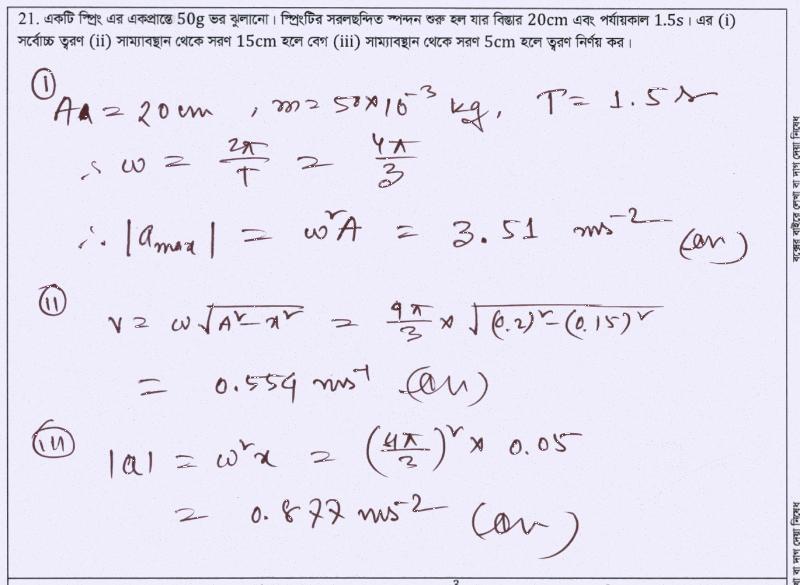 21. একটি স্প্রিং এর একপ্রান্তে 50g ভর ঝুলানো। স্প্রিংটির সরলছন্দিত স্পন্দন শুরু হল যার বিস্তার 20cm এবং পর্যায়কাল 1.5s। এর (i)
সর্বোচ্চ ত্বরণ (ii) সাম্যাবস্থান থেকে সরণ 15cm হলে বেগ (iii) সাম্যাবস্থান থেকে সরণ 5cm হলে ত্বরণ নির্ণয় কর।
(i)
A = 20 cm, m = 50×10⁻³ kg, T = 1.5 s
∴ ω = 2π/T = 4π/3
∴ |a_max| = ω²A = 3.51 ms⁻² (Ans)
(ii)
v = ω√(A²−x²) = 4π/3 × √((0.2)²−(0.15)²)
= 0.554 ms⁻¹ (Ans)
(iii)
|a| = ω²x = (4π/3)² × 0.05
= 0.877 ms⁻² (Ans)
বক্সের বাইরে লেখা বা দাগ দেয়া নিষেধ
বা দাগ দেয়া নিষেধ